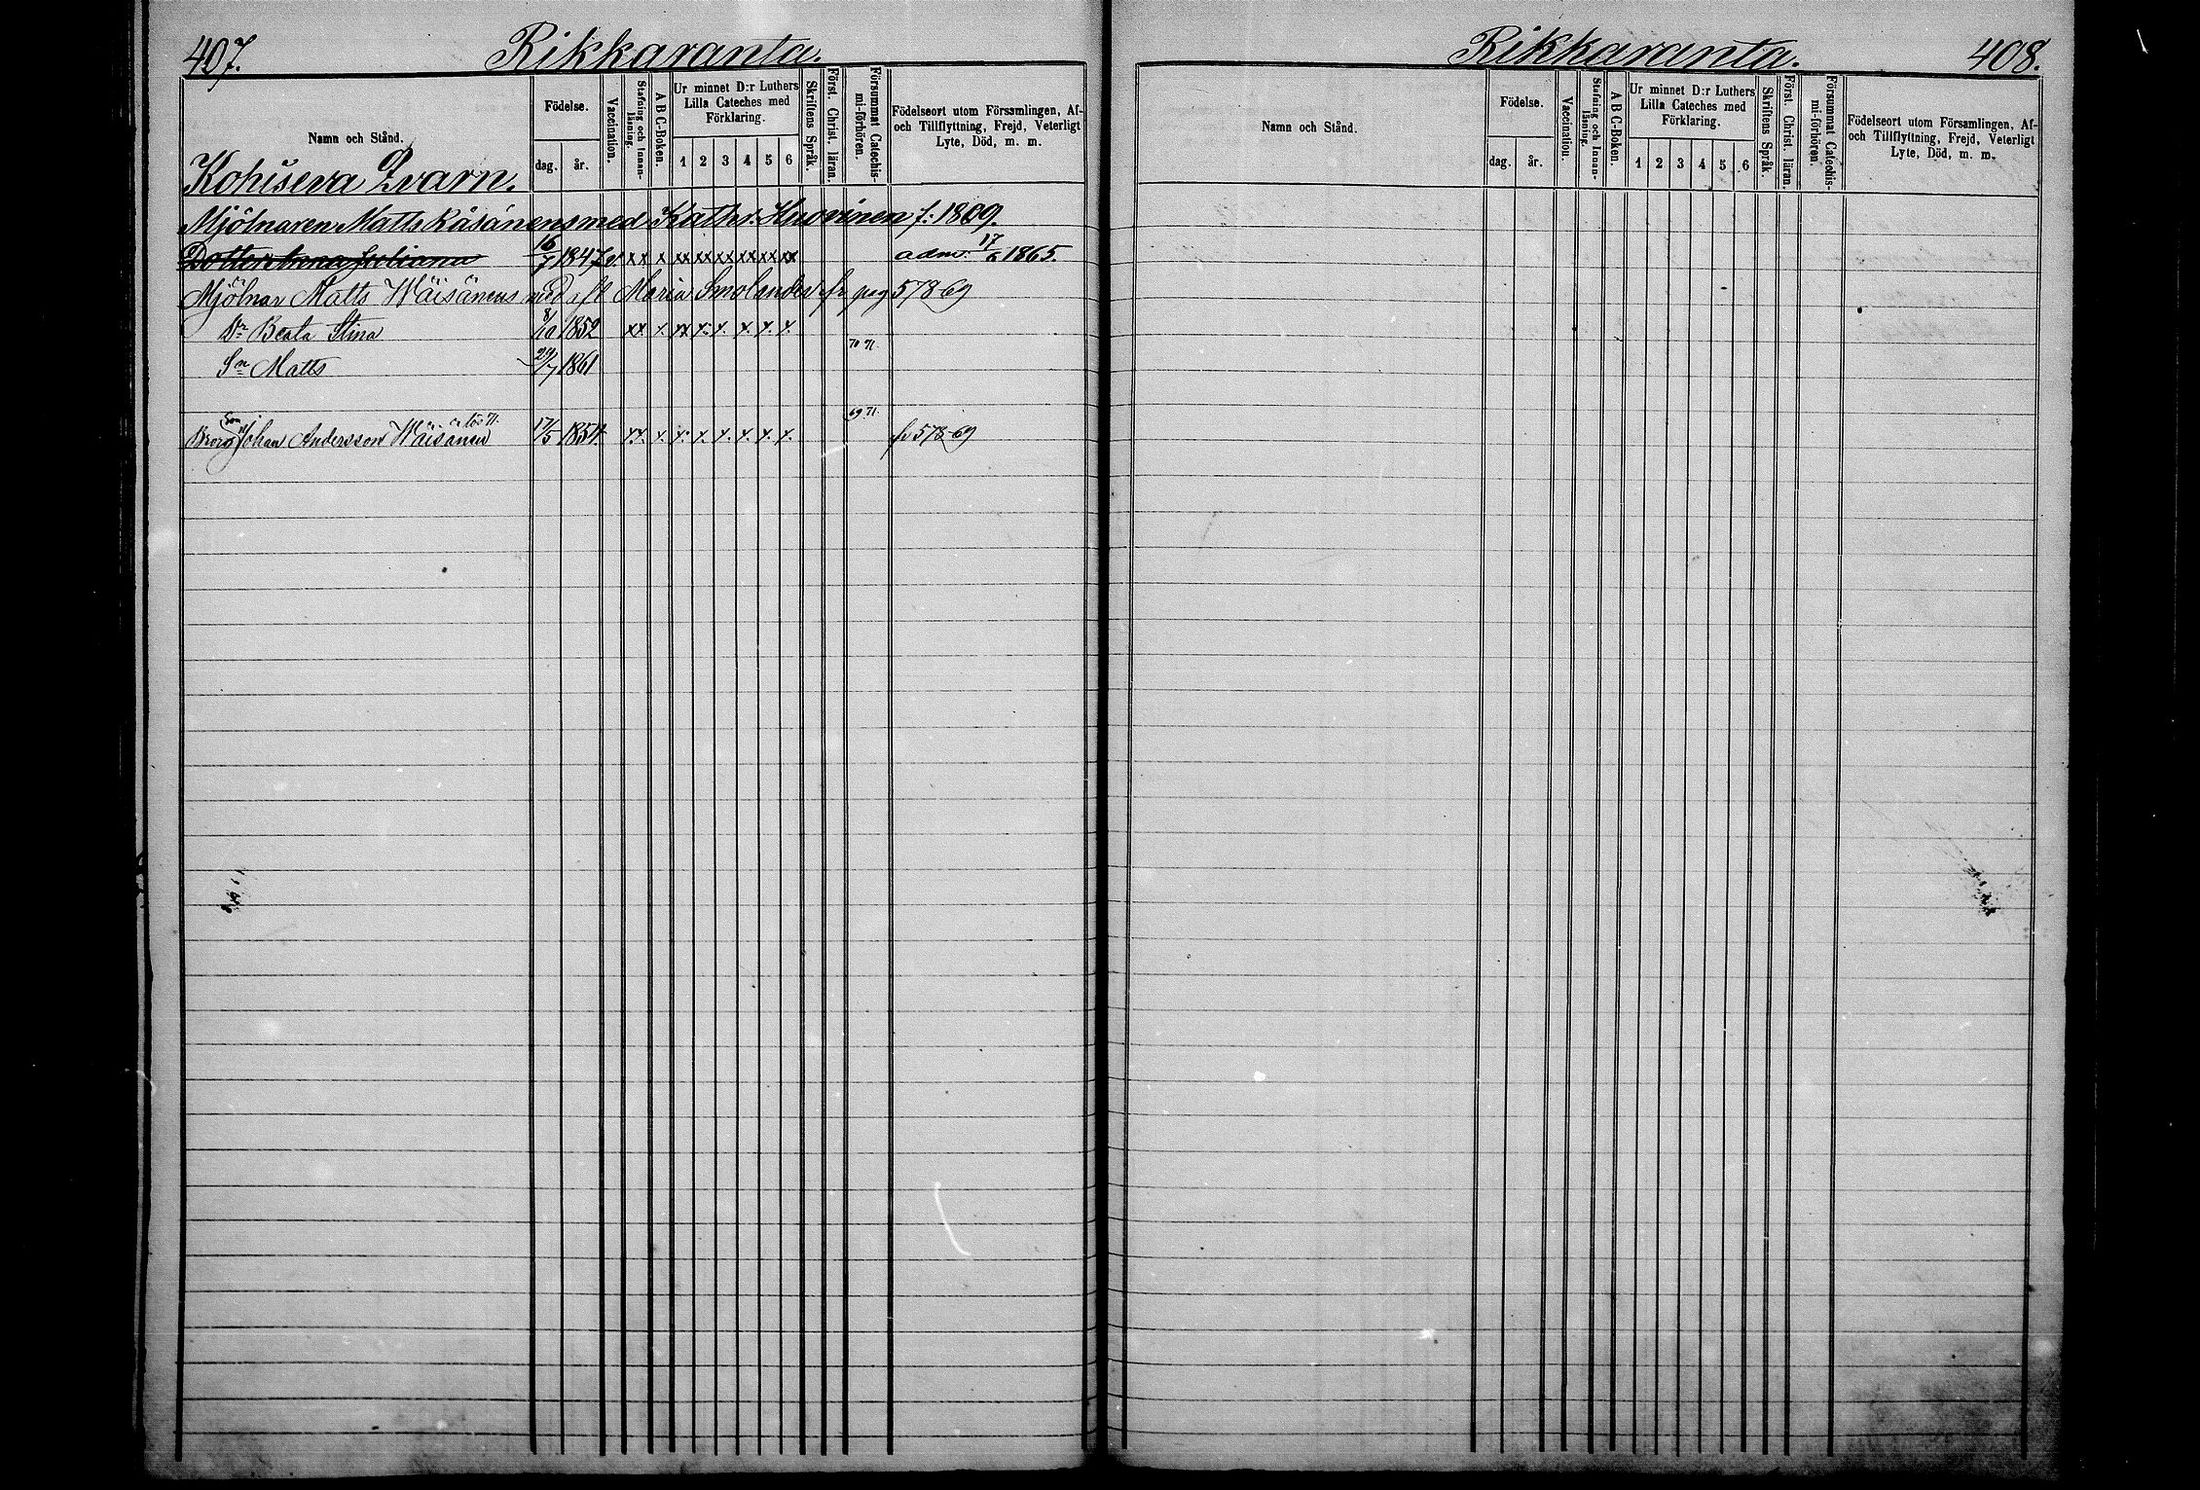 407. Rikkaranta.
Namn och Stånd.
Födelse.
dag. år.
Vaccination.
Stafning och Innanläsning.
A B C-Boken.
Ur minnet D:r Luthers Lilla Cateches med Förklaring.
1 2 3 4 5 6
Skriftens Språk.
Först. Christ. läran.
Försummat Catechismi-förhören.
Födelseort utom Församlingen, Af- och Tillflyttning, Frejd, Veterligt Lyte, Död, m. m.
Kohiseva Qvarn.
Mjölnaren Matts Räsänens med Kathr. Huovinen f. 1809.
Dotter Anna Juliana 16/7 1847 v xx x xx xx xx xx xx xx adm. 17/6 1865.
Mjölnar Matts Wäisänens med Maria Smolander fr pag 578-69
Dr Beata Stina 8/10 1852 xx x xx x x x x x
70 71.
Sn Matts 29/7 1861
69 71.
Johan Andersson Wäisänen 17/5 1854 xx x x x x x x x fr 578-69
Rikkaranta. 408.
Namn och Stånd.
Födelse.
dag. år.
Vaccination.
Stafning och Innanläsning.
A B C-Boken.
Ur minnet D:r Luthers Lilla Cateches med Förklaring.
1 2 3 4 5 6
Skriftens Språk.
Först. Christ. läran.
Försummat Catechismi-förhören.
Födelseort utom Församlingen, Af- och Tillflyttning, Frejd, Veterligt Lyte, Död, m. m.